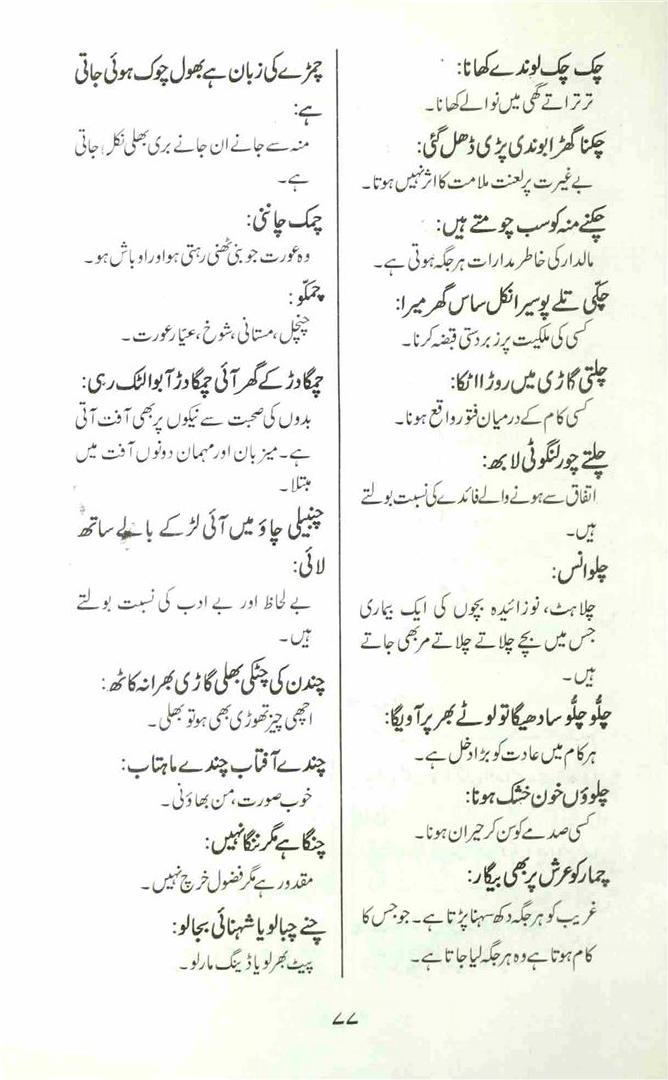 چک چک لوندے کھانا:
ترتراتے گھی میں نوالے کھانا۔
چکنا گھڑا بوندی پڑی ڈھل گئی:
بے غیرت پر لعنت ملامت کا اثر نہیں ہوتا۔
چکنے منہ کو سب چومتے ہیں:
مالدار کی خاطر مدارات ہر جگہ ہوتی ہے۔
چکّی تلے پوسیرا نکل ساس گھر میرا:
کسی کی ملکیت پر زبردستی قبضہ کرنا۔
چلتی گاڑی میں روڑا اٹکا:
کسی کام کے درمیان فتور واقع ہونا۔
چلتے چور لنگوٹی لابھ:
اتفاق سے ہونے والے فائدے کی نسبت بولتے
ہیں۔
چلوانس:
چلاہٹ، نوزائیدہ بچوں کی ایک بیماری
جس میں بچے چلاتے چلاتے مر بھی جاتے
ہیں۔
چلُّو چلُّو سادھیگا تو لوٹے بھر پر آویگا:
ہر کام میں عادت کو بڑا دخل ہے۔
چلوؤں خون خشک ہونا:
کسی صدمے کو سن کر حیران ہونا۔
چمار کو عرش پر بھی بیگار:
غریب کو ہر جگہ دکھ سہنا پڑتا ہے۔ جو جس کا
کام ہوتا ہے وہ ہر جگہ لیا جاتا ہے۔
چمڑے کی زبان ہے بھول چوک ہوئی جاتی
ہے:
منہ سے جانے ان جانے بری بھلی نکل جاتی
ہے۔
چمک چاننی:
وہ عورت جو بنی ٹھنی رہتی ہو اور اوباش ہو۔
چمکّو:
چنچل، مستانی، شوخ، عیّار عورت۔
چمگادڑ کے گھر آئی چمگادڑ آبوا لٹک رہی:
بدوں کی صحبت سے نیکوں پر بھی آفت آتی
ہے۔ میزبان اور مہمان دونوں آفت میں
مبتلا۔
چنبیلی چاؤ میں آئی لڑکے بالے ساتھ
لائی:
بے لحاظ اور بے ادب کی نسبت بولتے
ہیں۔
چندن کی چٹکی بھلی گاڑی بھرا نہ کاٹھ:
اچھی چیز تھوڑی بھی ہو تو بھلی۔
چندے آفتاب چندے ماہتاب:
خوب صورت، من بھاؤنی۔
چنگا ہے مگر ننگا نہیں:
مقدور ہے مگر فضول خرچ نہیں۔
چنے چبا لو یا شہنائی بجا لو:
پیٹ بھر لو یا ڈینگ مار لو۔
۷۷